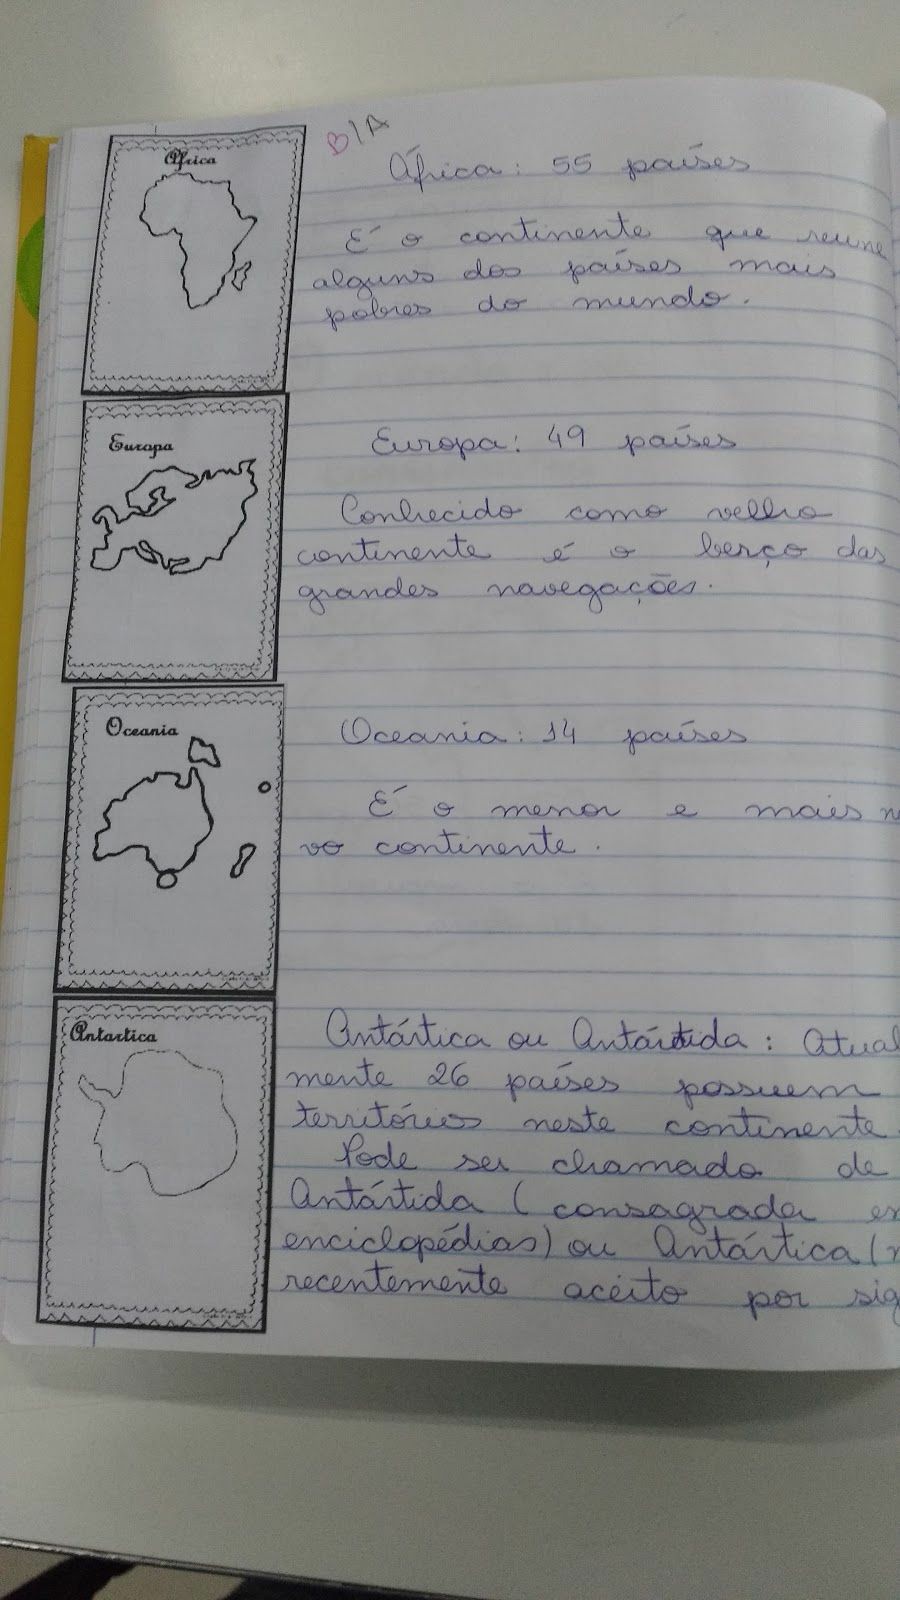 África
B/A
África: 55 países
É o continente que reune
alguns dos países mais
pobres do mundo.
Europa
Europa: 49 países
Conhecido como velho
continente é o berço das
grandes navegações.
Oceania
Oceania: 14 países
É o menor e mais n
vo continente.
Antartica
Antártica ou Antártida: Atual
mente 26 países possuem
territórios neste continente
Pode ser chamado de
Antártida (consagrada en
enciclopédias) ou Antártica (
recentemente aceito por sig